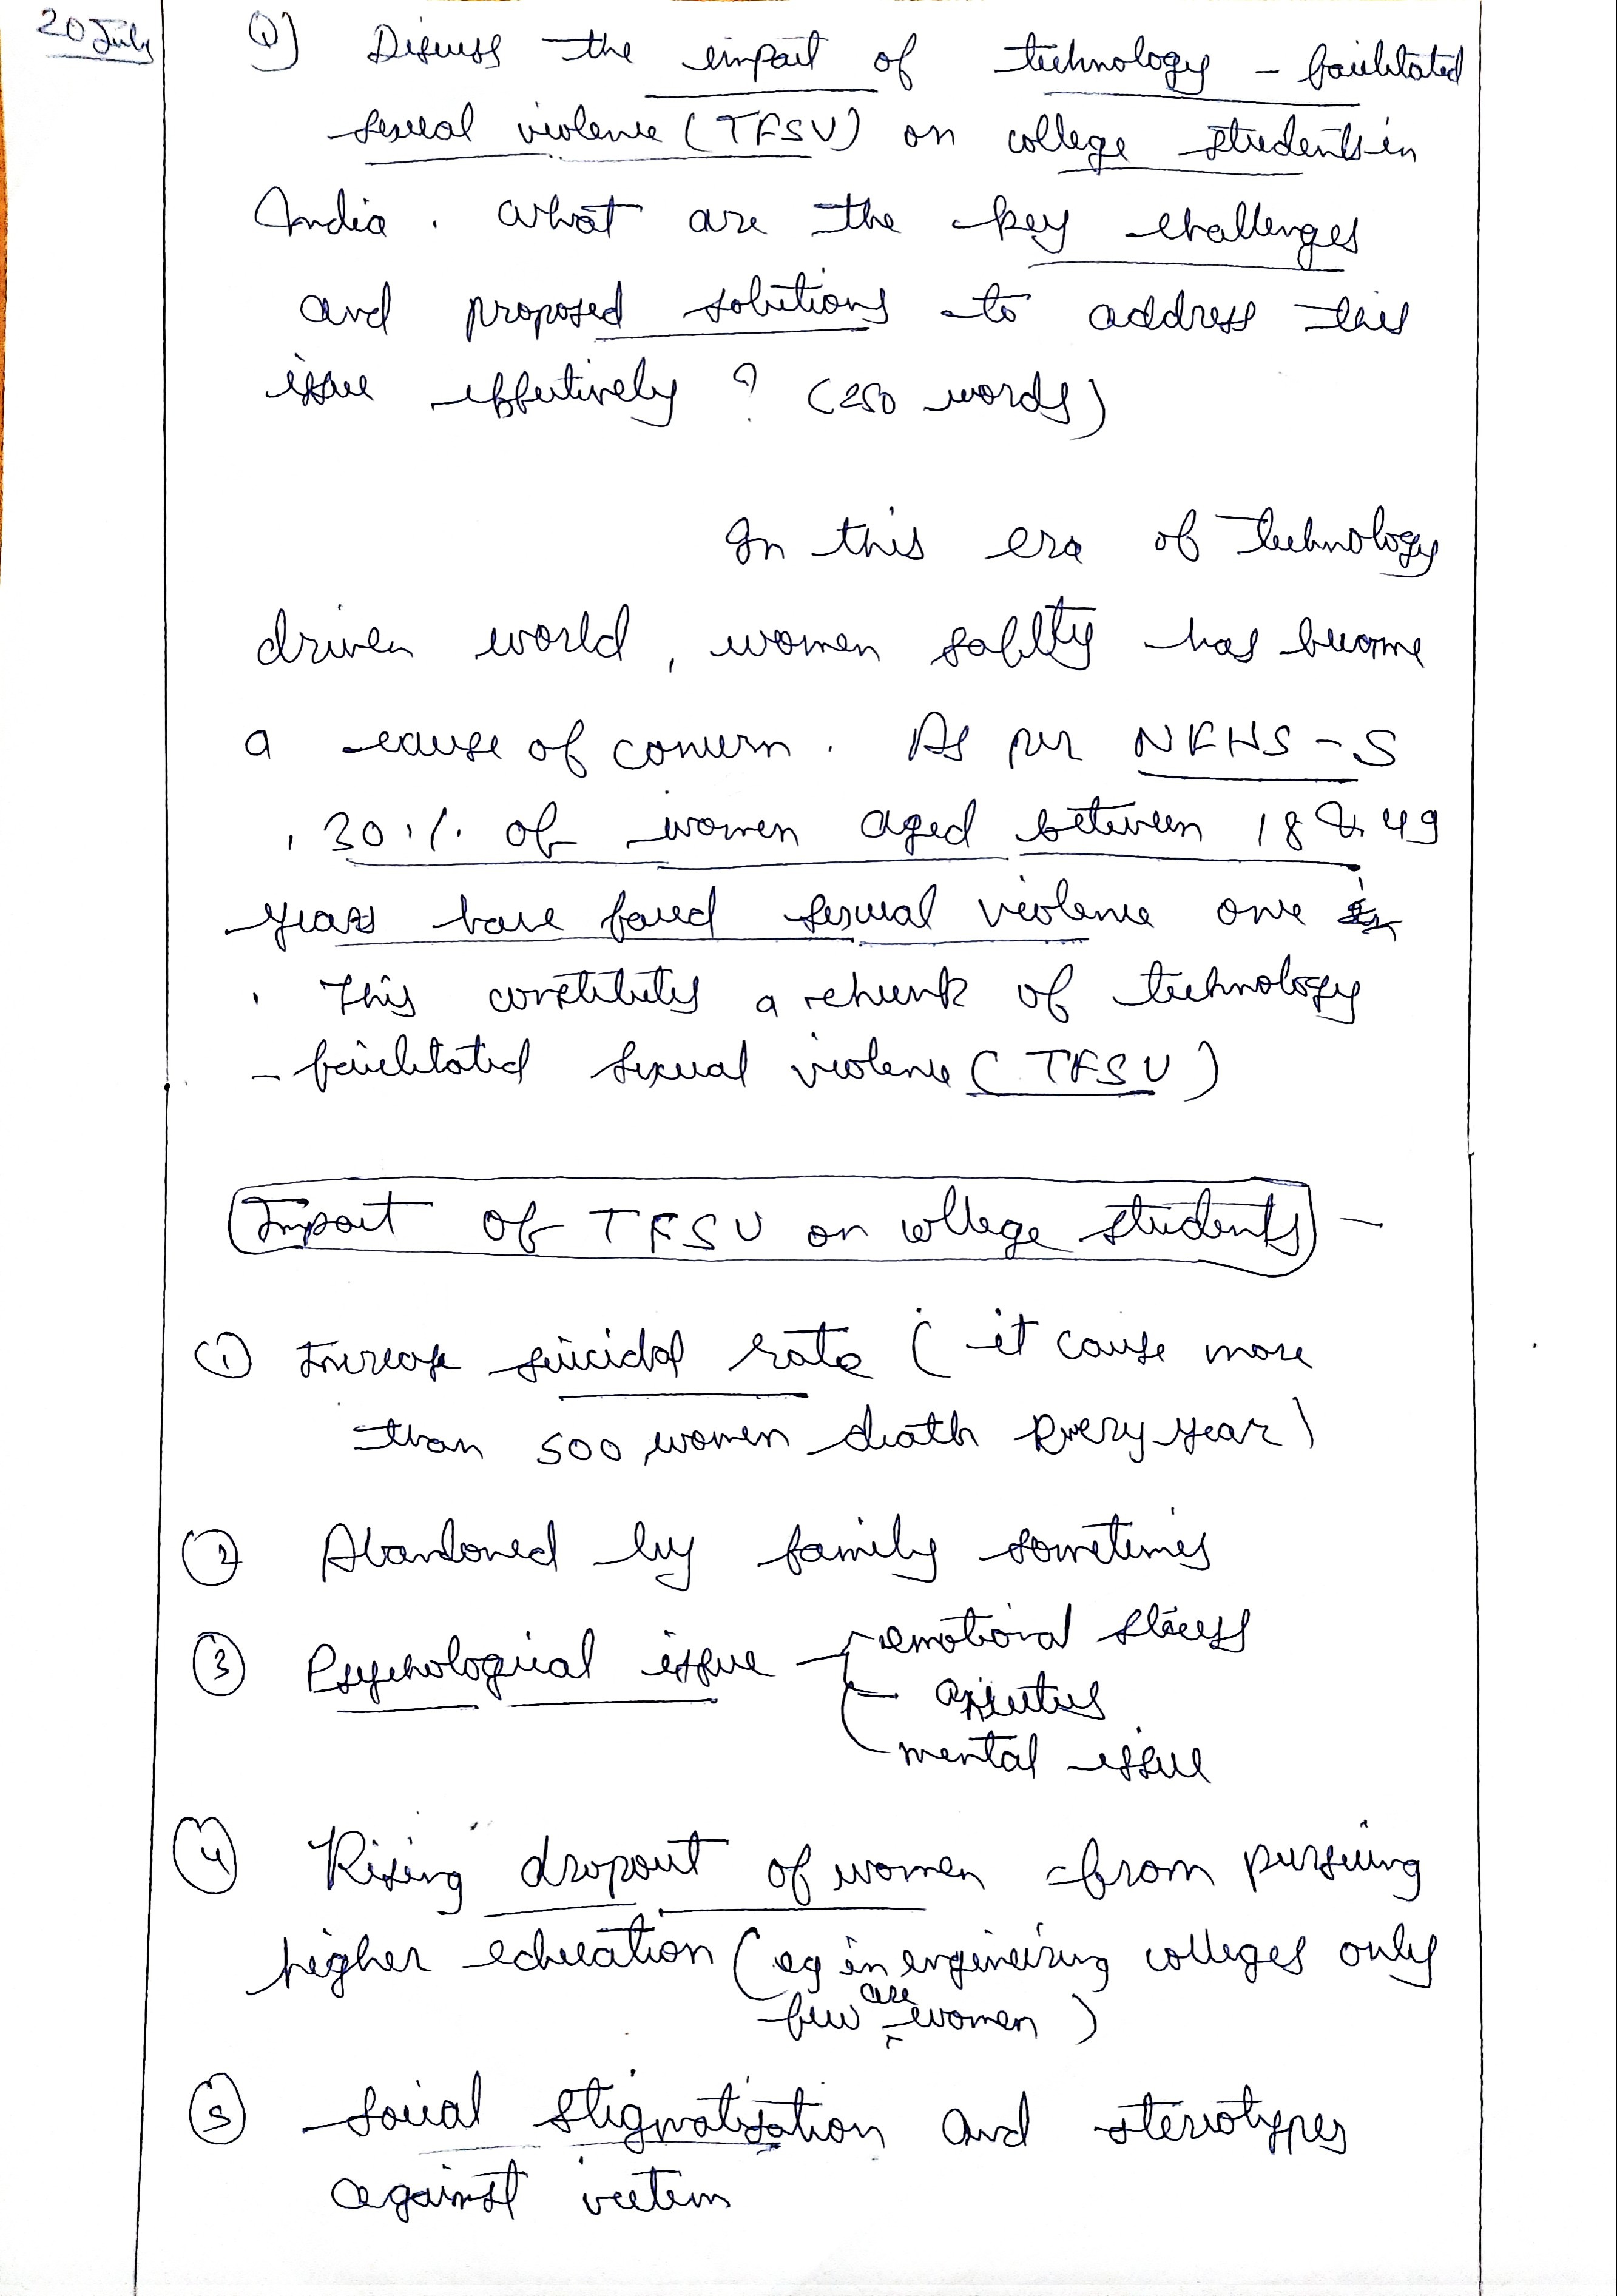 20 July
Q) Discuss the impact of technology - facilitated
sexual violence (TFSV) on college students in
India. What are the key challenges
and proposed solutions to address this
issue effectively? (250 words)
In this era of technology
driven world, women safety has become
a cause of concern. As per NFHS-5
, 30% of women aged between 18 & 49
years have faced sexual violence once
. This constitutes a chunk of technology
- facilitated sexual violence (TFSV)
Impact of TFSV on college students -
① Increase suicidal rate (it cause more
than 500 women death every year)
② Abandoned by family sometimes
③ Psychological issue - emotional stress
- anxieties
mental issue
④ Rising dropout of women from pursuing
higher education (eg in engineering colleges only
few are women)
⑤ Social stigmatisation and steriotypes
against victim